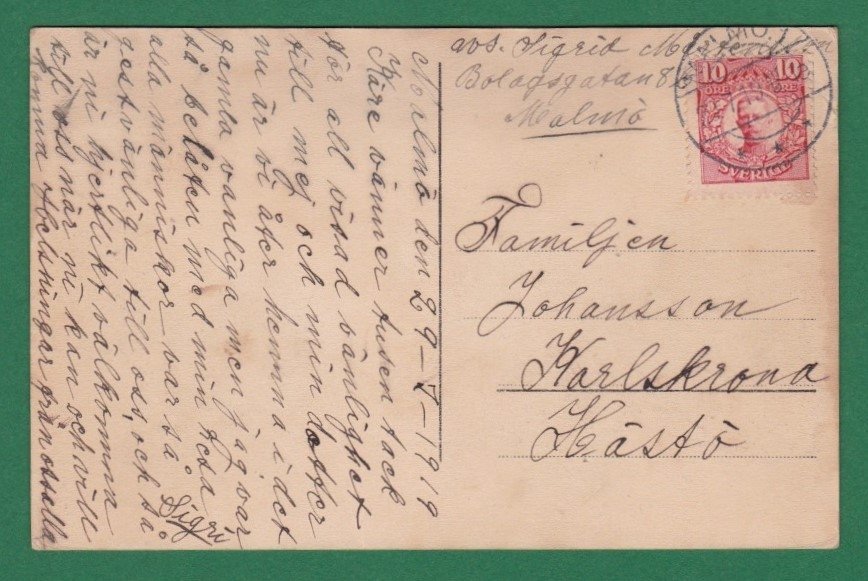 Malmö den 29-7-1919
Käre vänner tusen tack
för all visad vänlighet
till mej och min dotter
nu är vi åter hemma i det
gamla vanliga men jag var
så belåten med min resa
alla människor var så
gestvänliga till oss, och så
är ni hjertlikt välkomna
till oss när ni kan och vill
komma Helsningar från oss alla
Sigri
avs. Sigrid
Bolagsgatan
Malmö
MALMÖ
10 10
ÖRE ÖRE
SVERIGE
Familjen
Johansson
Karlskrona
Hästö